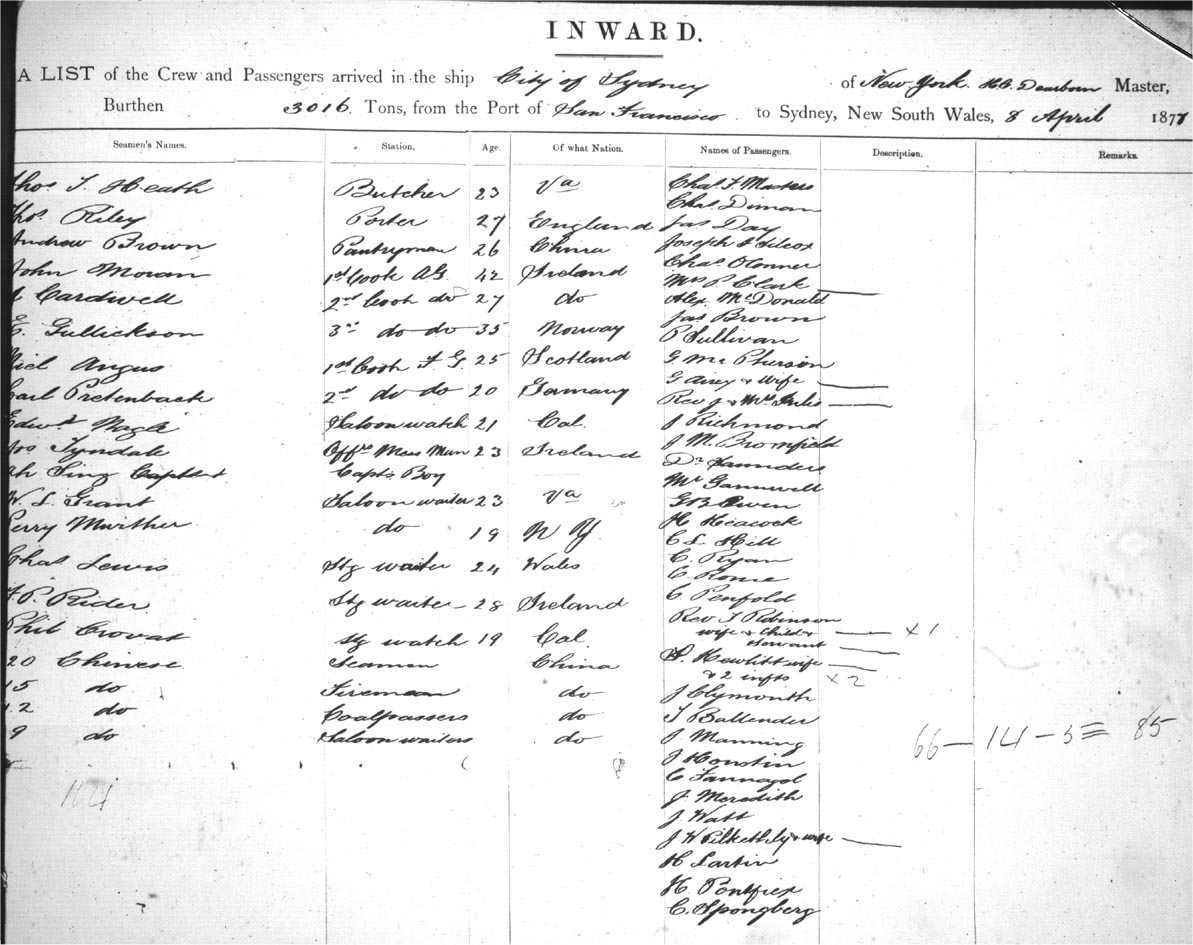 INWARD.
A LIST of the Crew and Passengers arrived in the ship City of Sydney of New York. H.C. Dearborn Master,
Burthen 3016 Tons, from the Port of San Francisco to Sydney, New South Wales, 8 April 1877
Seamen's Names. Station. Age. Of what Nation. Names of Passengers. Description. Remarks.
Thos J. Heath Butcher 23 Va
Thos Riley Porter 27 England
Andrew Brown Pantryman 26 China
John Moran 1st Cook AG 42 Ireland
Cardwell 2nd Cook do 27 do
E. Gullickson 3rd do do 35 Norway
Niel Angus 1st Cook F G. 25 Scotland
Carl Pretenback 2nd do do 20 Germany
Edwd Nagle Saloon watch 21 Cal.
Jos Tyndale Offrs Mess Man 23 Ireland
Ah Sing Capts Boy
W. S. Grant Saloon waiter 23 Va
Perry Mwither do 19 N Y.
Chas Lewis Stg waiter 24 Wales
F. P. Rider Stg waiter 28 Ireland
Phil Crovat Stg watch 19 Cal.
20 Chinese Seamen China
15 do Firemen do
12 do Coalpassers do
9 do Saloon waiters do
Chas F Masters
Chas Dimon
Jas Day
Joseph Silcox
Chas O'Conner
Mrs P Clark
Alex. McDonald
Jas Brown
P Sullivan
G McPherson
G Airey & wife
Rev J & Mrs
J Richmond
J M. Bromfield
Dr Saunders
Mr Gammell
G B Owen
H. Heacock
C L Hill
C. Ryan
C. Rowe
C Penfold
Rev J Robinson
wife & Child & x 1
servant
Hewlitt wife
& 2 infts x 2
J Clymonth
T Ballender
J Manning
66 - 14 - 5 = 85
J Houstin
C Fannagel
J. Meredith
J Watt
J W Pilkethly & wife
H Lartin
H. Pontifex
C. Spongberg